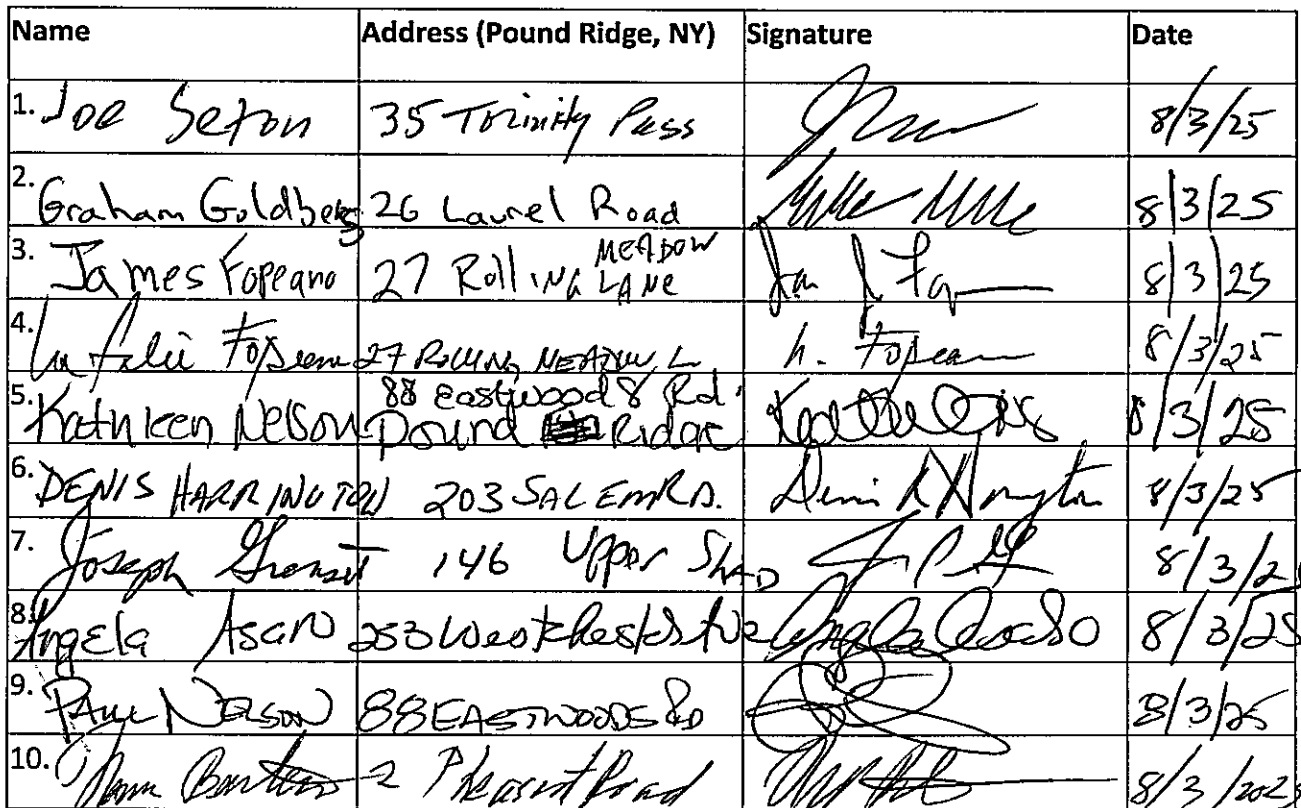 Name Address (Pound Ridge, NY) Signature Date
1. Joe Seton 35 Trinity Pass 8/3/25
2. Graham Goldberg 26 Laurel Road 8/3/25
3. James Fopeano 27 Rolling MEADOW LANE 8/3/25
4. Fopeano 27 ROLLING MEADOW L h. Fopeano 8/3/25
88 Eastwoods Rd
5. Kathleen Nelson Pound Ridge 8/3/25
6. DENIS HARRINGTON 203 SALEM RD. Denis Harrington 8/3/25
7. Joseph 146 Upper Shad 8/3/25
8. Angela Asaro 253 Westchester Ave Angela Asaro 8/3/25
9. PAUL NELSON 88 EASTWOODS RD 8/3/25
10. 2 Pheasant Road 8/3/2025